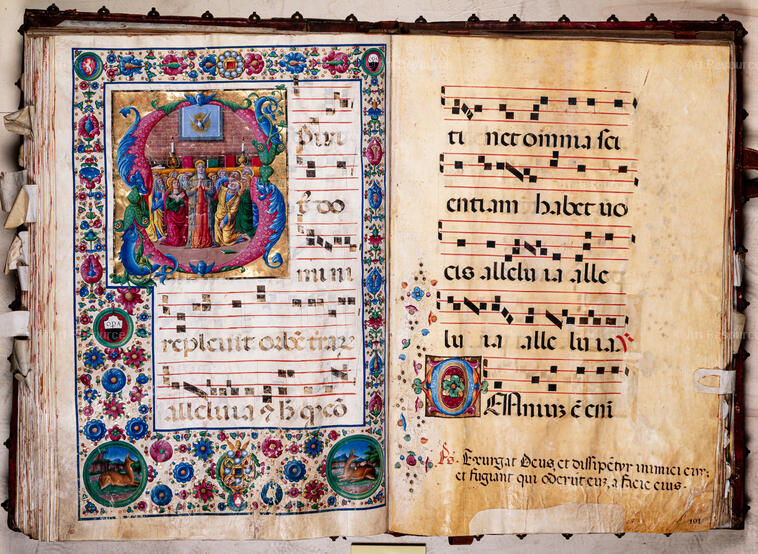 Spiri
t⁹ do
mini
repleuit orbē terar
alleluia
OPA
ti net omnia sci
entiam habet uo
cis allelu ia alle
lu ia alle lu ia
ē eni
Ps. Exurgat Deus, et dissipētur inimici eius:
et fugiant qui oderūt eū, a facie eius.
101
Art Resource